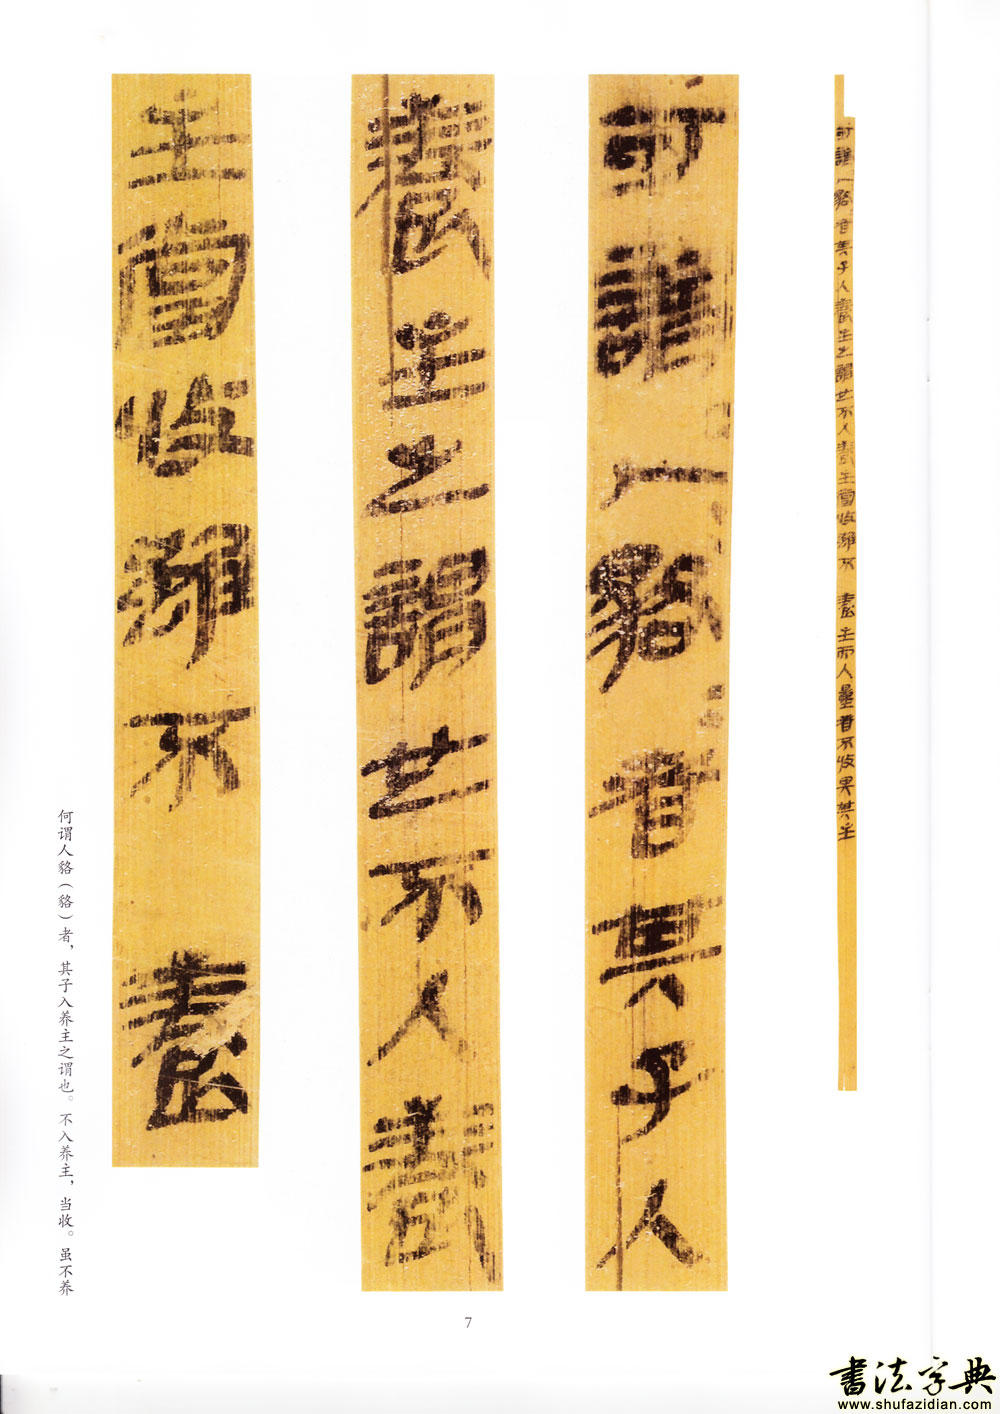 可謂人貉者其子入養主之謂也不入養主當收雖不養主而入量者不收畀其主
可謂人貉者其子入
養主之謂也不入養
主當收雖不養
何谓人貉（貉）者，其子入养主之谓也。不入养主，当收。虽不养
7
书法字典
www.shufazidian.com